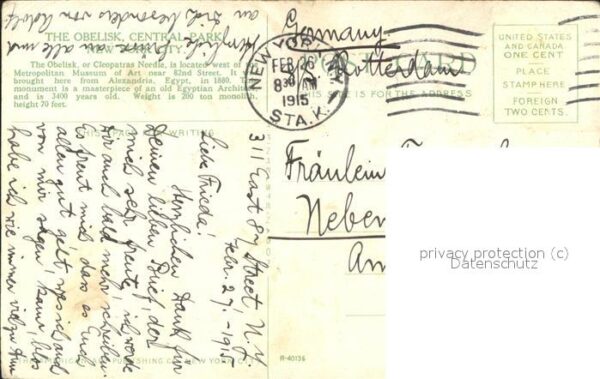 THE OBELISK, CENTRAL PARK,
NEW YORK CITY.
The Obelisk, or Cleopatras Needle, is located west of the
Metropolitan Museum of Art near 82nd Street. It was
brought here from Alexandria, Egypt, in 1880. The
monument is a masterpiece of an old Egyptian Architect
and is 3400 years old. Weight is 200 ton monolith,
height 70 feet.
THIS SPACE FOR WRITING
311 East 87 Street, N.Y.
Febr. 27. - 1915
Liebe Frieda!
Herzlichen Dank für
Deinen lieben Brief, der
mich sehr freute, ich werde
Dir auch bald mehr schreiben.
Es freut mich dass es Euch
allen gut geht, was ich auch
von mir sagen kann, blos
habe ich wie immer viel zu tun
Herzliche Grüsse an alle und
an Dich besonders von Adolf
Germany
Rotterdam
POST CARD
THIS SIDE IS FOR THE ADDRESS
NEW YORK, N.Y.
FEB 26
830 PM
1915
STA. K.
UNITED STATES
AND CANADA
ONE CENT
PLACE
STAMP HERE
FOREIGN
TWO CENTS.
Fräulein
Neber
Am
privacy protection (c)
Datenschutz
PUBLISHING CO., NEW YORK CITY
R-40136